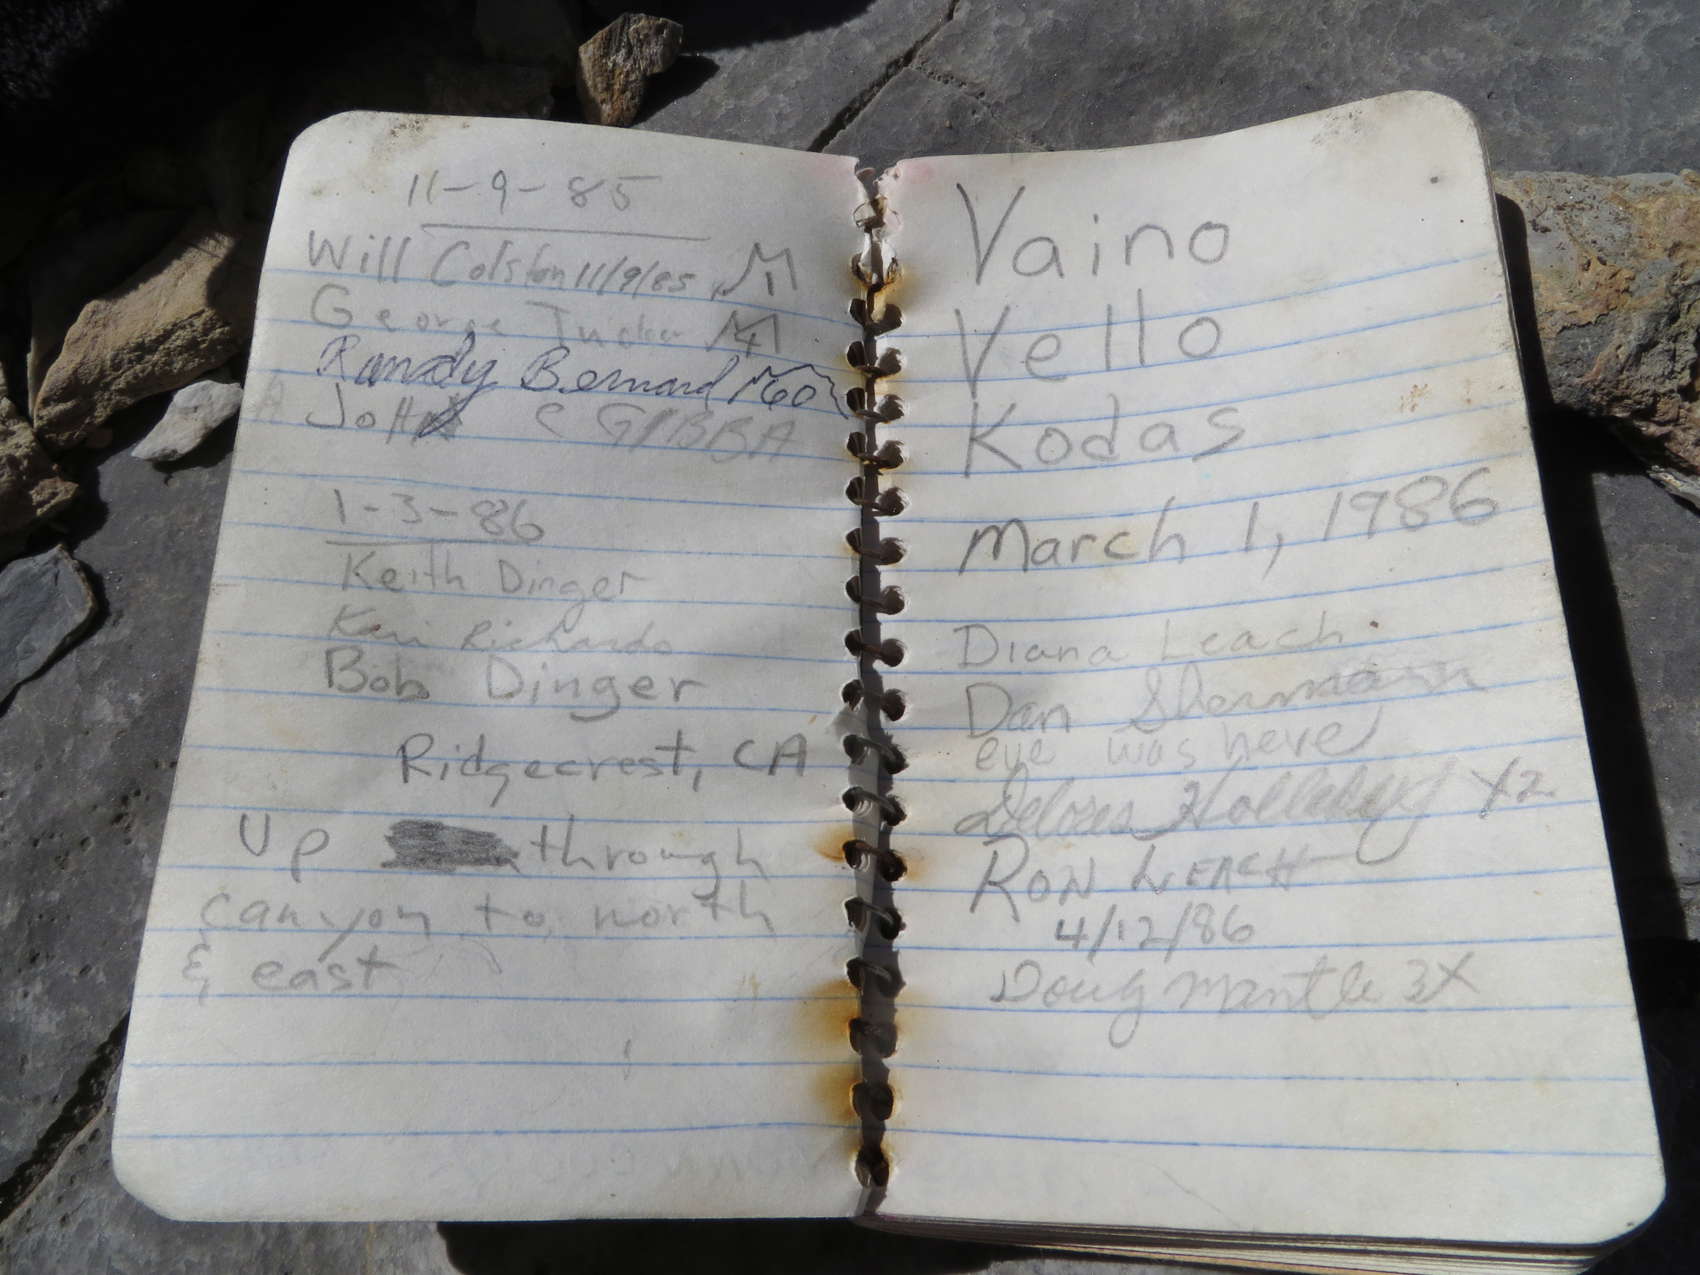 11-9-85
Will Colston 11/9/85 1
George Tucker 4
Randy Bernard 60
John C GIBBA
1-3-86
Keith Dinger
Kari Richards
Bob Dinger
Ridgecrest, CA
Up through
canyon to north
& east
Vaino
Vello
Kodas
March 1, 1986
Diana Leach
Dan Sherman
eve was here
Delores Holladay X2
RON LEACH
4/12/86
Doug Mantle 3X